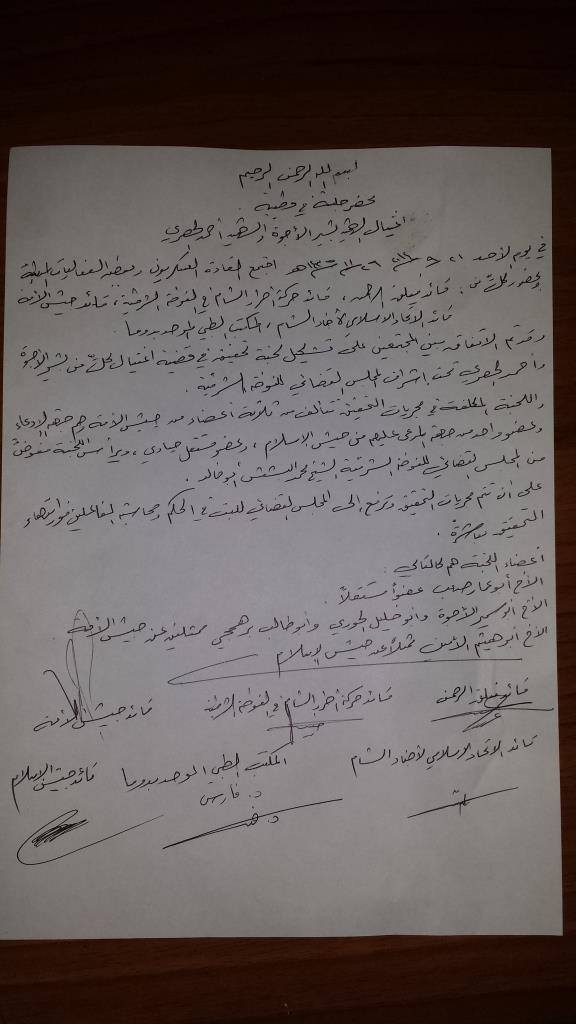 بسم الله الرحمن الرحيم
محضر جلسة في قضية
اغتيال الشهيد بشير الأجوة والشهيد أحمد الحصري
في يوم الأحد ٢١ ٩ اجتمع القادة العسكريون وبعض الفعاليات المدنية
بحضور كلٍّ من: قائد فيلق الرحمن، قائد حركة أحرار الشام في الغوطة الشرقية، قائد جيش الأمة
قائد الاتحاد الإسلامي لأجناد الشام، المكتب الطبي الموحد بدوما.
وقد تم الاتفاق بين المجتمعين على تشكيل لجنة تحقيق في قضية اغتيال كلٍّ من بشير الأجوة
وأحمد الحصري تحت إشراف المجلس القضائي للغوطة الشرقية
واللجنة المكلفة في مجريات التحقيق تتألف من ثلاثة أعضاء من جيش الأمة هم جهة الإدعاء
وعضو واحد من جهة المدعى عليهم من جيش الإسلام، وعضو مستقل حيادي، ويرأس اللجنة مفوضٌ
من المجلس القضائي للغوطة الشرقية الشيخ محمد أبو خالد.
على أن تتم مجريات التحقيق وترفع إلى المجلس القضائي للبت في الحكم ومحاسبة الفاعلين فور انتهاء
التحقيق مباشرةً.
أعضاء اللجنة هم كالتالي:
الأخ أبو عمار عضواً مستقلاً.
الأخ أبو سمير الأجوة وأبو خليل وأبو طالب ممثلين عن جيش الأمة.
الأخ أبو هيثم الأمين ممثلاً عن جيش الإسلام
قائد فيلق الرحمن قائد حركة أحرار الشام في الغوطة الشرقية قائد جيش الأمة
قائد الاتحاد الإسلامي لأجناد الشام المكتب الطبي الموحد بدوما قائد جيش الإسلام
د. فارس